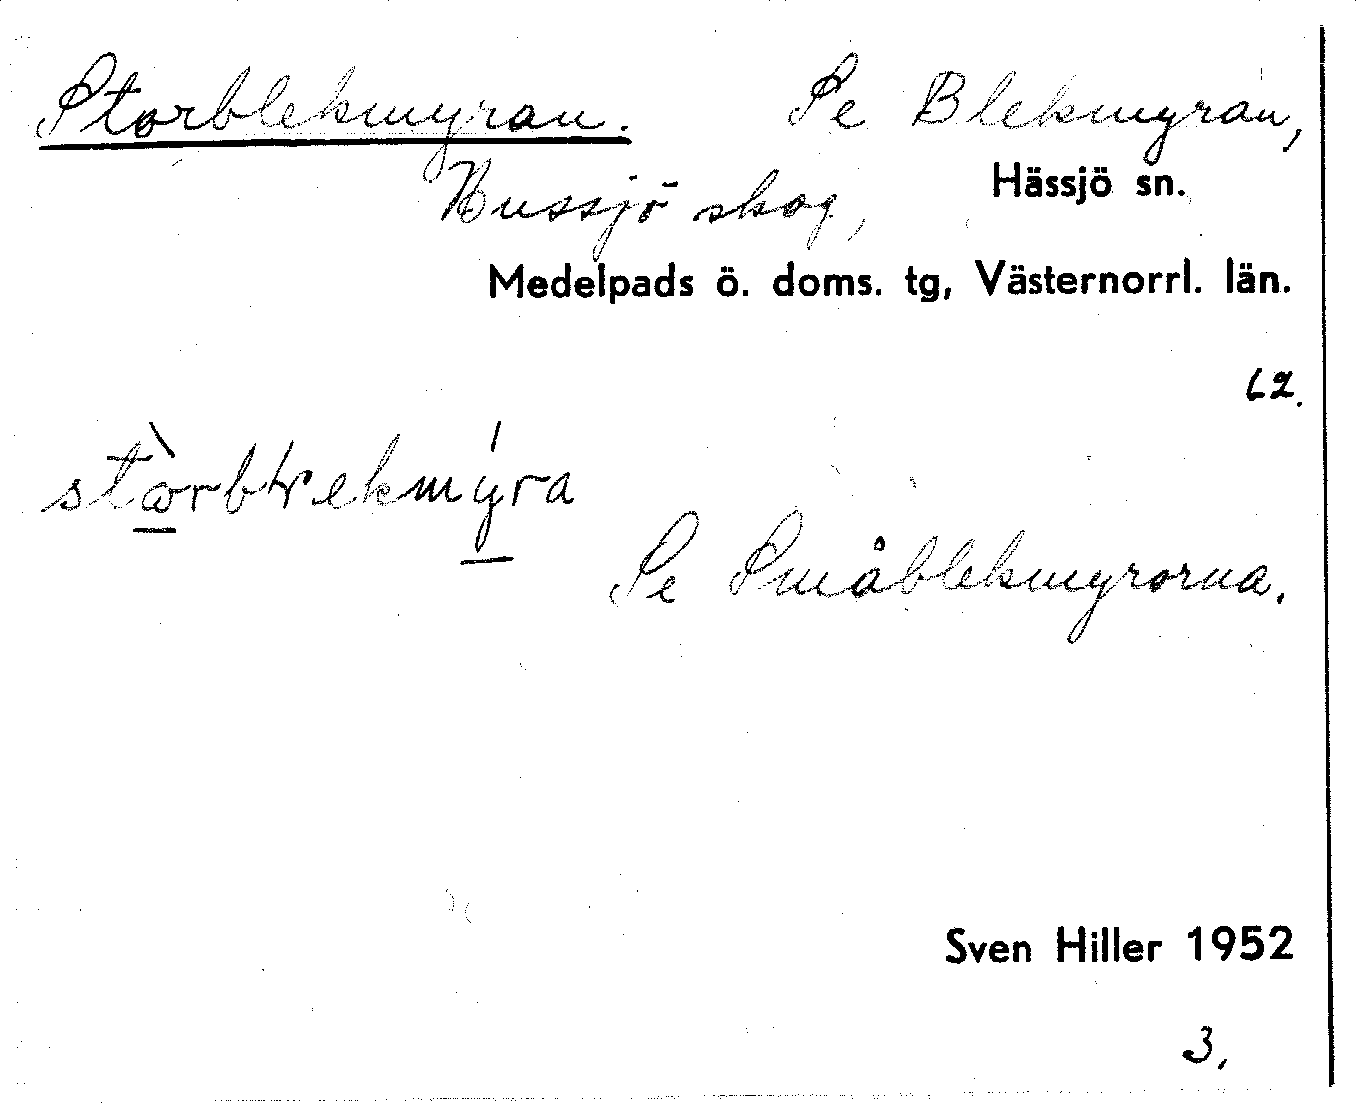 Storblekmyran. Se Blekmyran,
Hussjö skog, Hässjö sn.
Medelpads ö. doms. tg, Västernorrl. län.
62.
Se Småblekmyrorna.
Sven Hiller 1952
3.